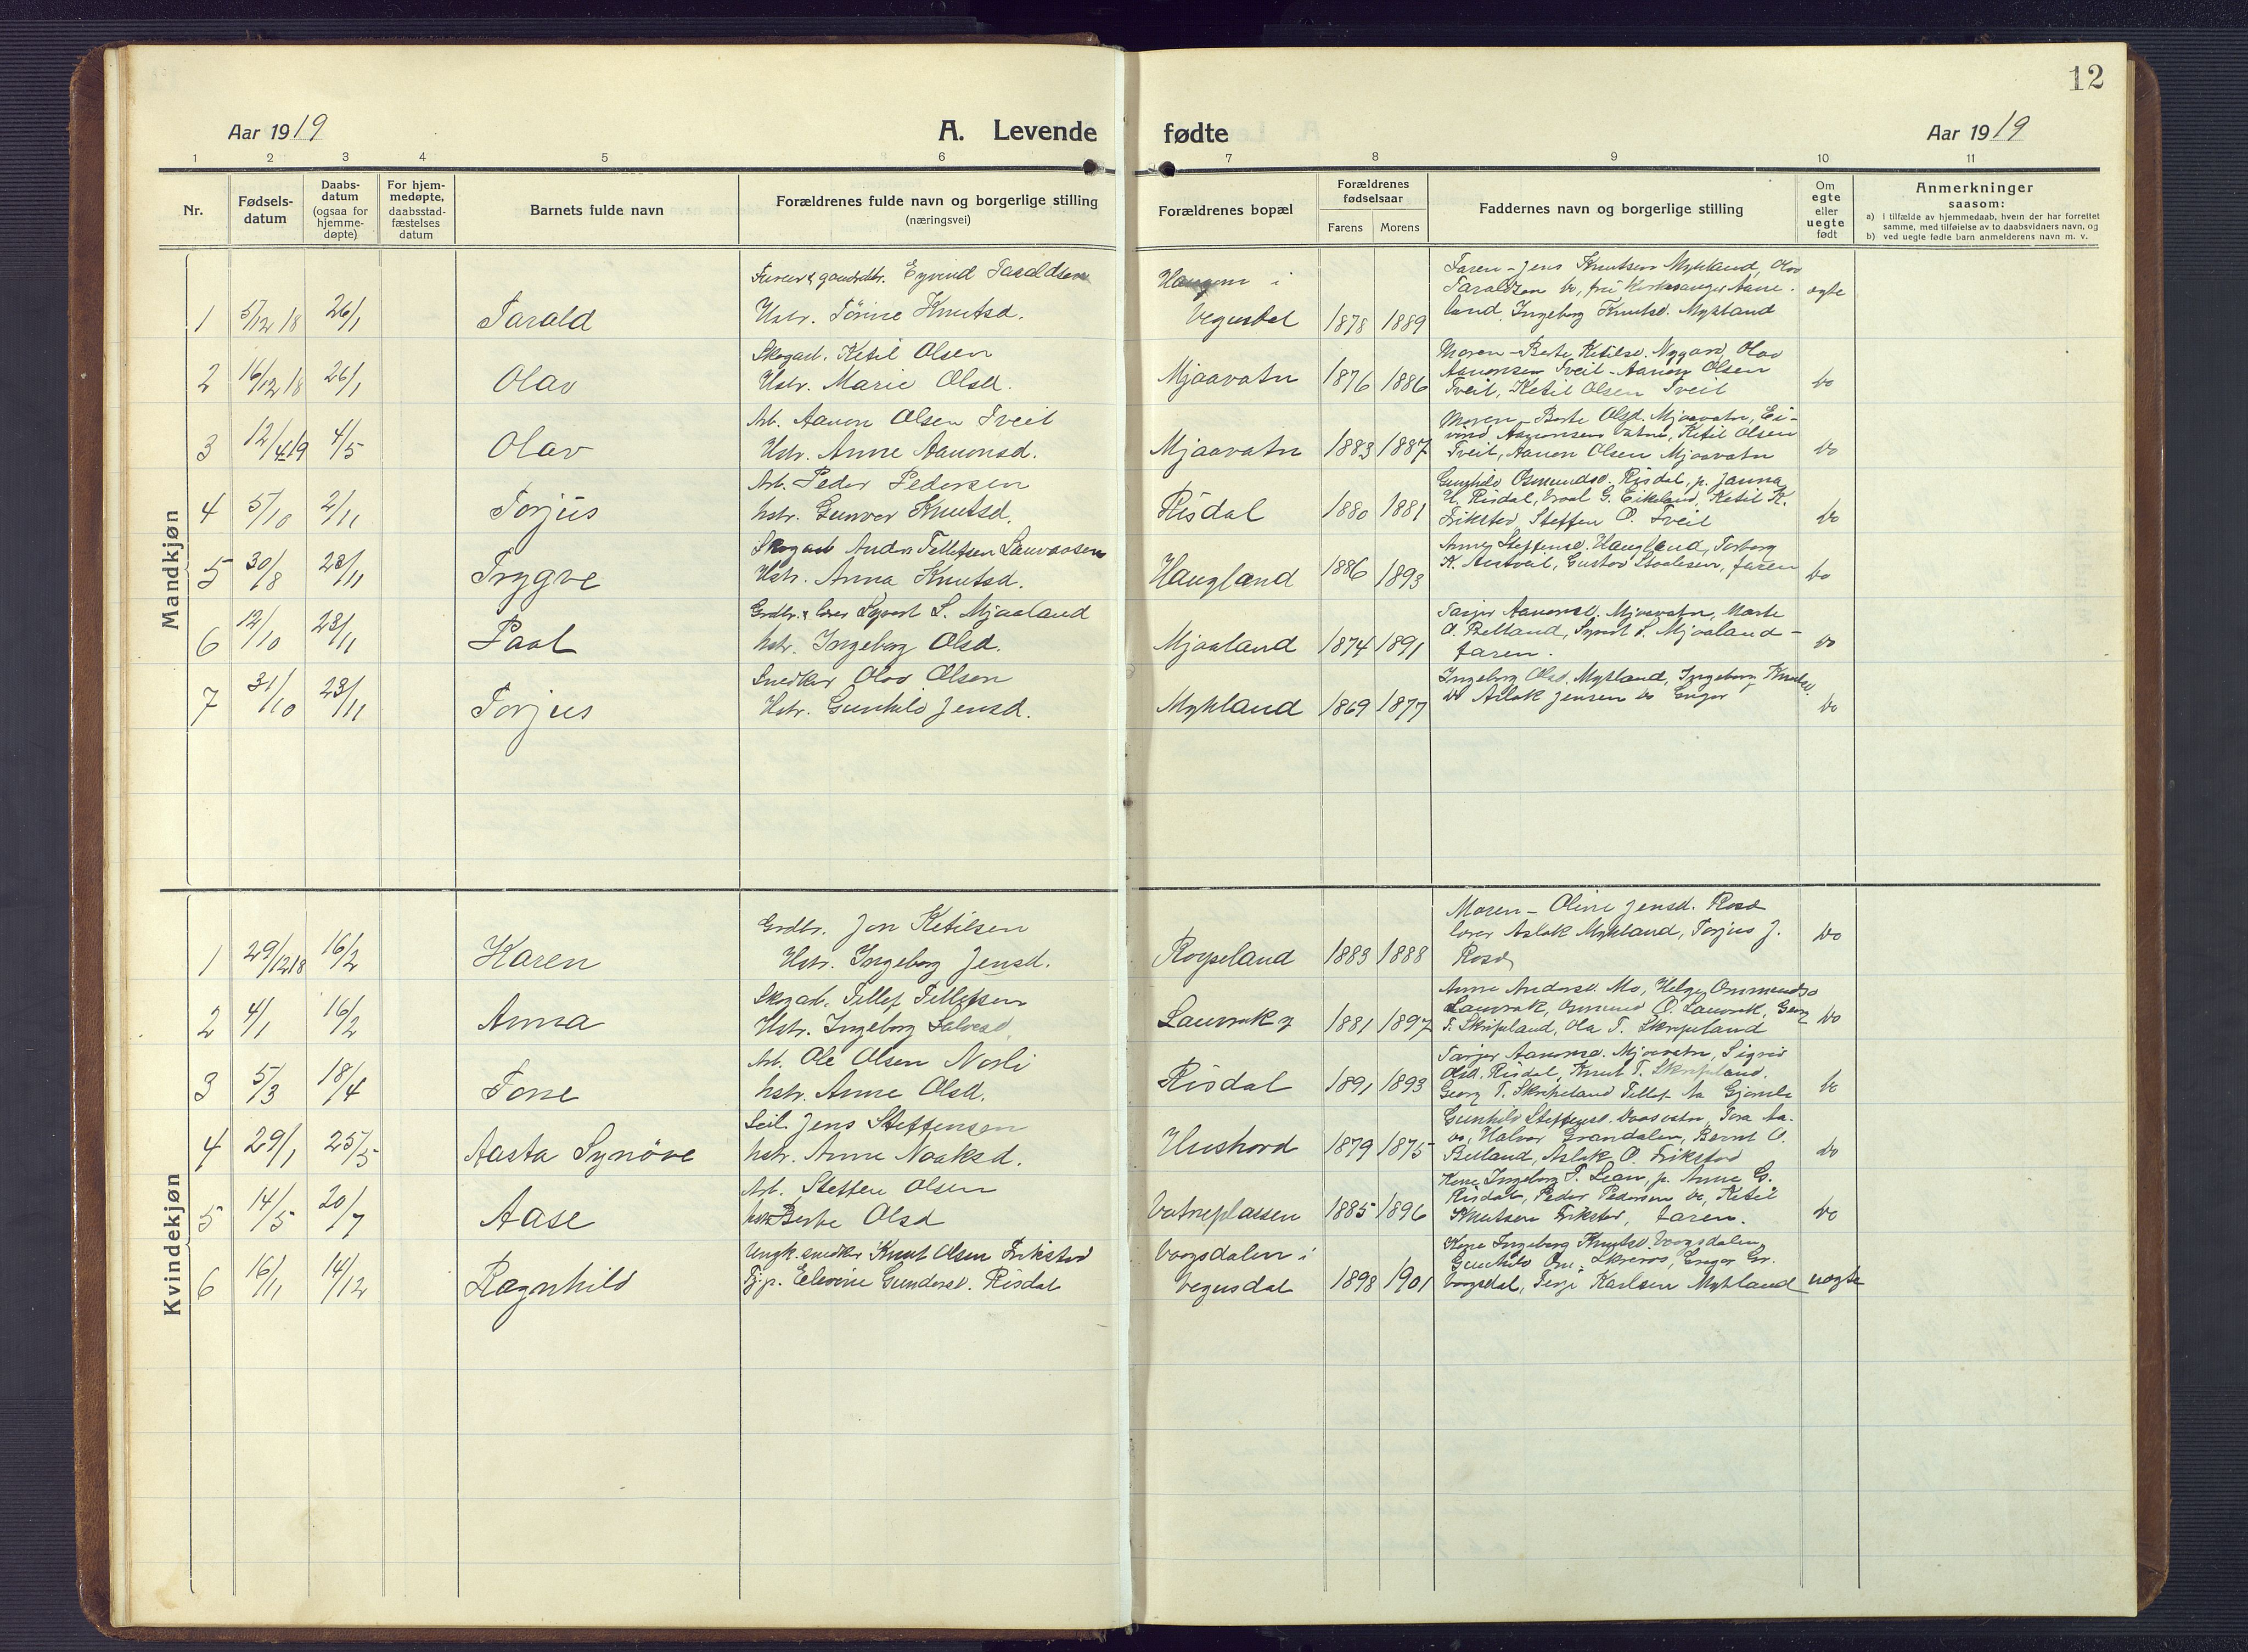 12
Aar 1919
A. Levende
fødte
Aar 1919
1 2 3 4 5 6 7 8 9 10 11
Nr.
Fødsels-
datum
Daabs-
datum
(ogsaa for
hjemme-
døpte)
For hjem-
medøpte,
daabsstad-
fæstelses
datum
Barnets fulde navn
Forældrenes fulde navn og borgerlige stilling
(næringsvei)
Forældrenes bopæl
Forældrenes
fødselsaar
Farens Morens
Faddernes navn og borgerlige stilling
Om
egte
eller
uegte
født
Anmerkninger
saasom:
a) i tilfælde av hjemmedaab, hvem der har forrettet
samme, med tilføielse av to daabsvidners navn, og
b) ved uegte fødte barn anmelderens navn m. v.
Mandkjøn
gaardbr. Eyvind Taraldsen
1 5/12 18 26/1 Tarald Hstr. Tørine Knutsd.
i
Vegusdal 1878 1889
Faren - Jens Knutsen Mykland, Olav
Taraldsen do, fru Kirkesanger Aane-
land, Ingeborg Knutsd. Mykland
egte
Skogarb. Ketil Olsen
2 16/12 18 26/1 Olav Hstr. Marie Olsd.
Mjaavatn 1876 1886
Moren - Berte Ketilsd. Nygard, Olav
Aanonsen Tveit - Aanon Olsen
Tveit, Ketil Olsen Tveit
do
Arb. Aanon Olsen Tveit
3 12/4 19 4/5 Olav Hstr. Anne Aanonsd.
Mjaavatn 1883 1887
Moren - Berte Olsd. Mjaavatn, Ei-
vind Aanonsen, Ketil Olsen
Tveit, Aanon Olsen Mjaavatn
do
Arb. Peder Pedersen
4 5/10 2/11 Torjus hstr. Gunvor Knutsd.
Risdal 1880 1881
Gunhild Osmundsd. Risdal, p. Janna
H. Risdal, G. Eikeland, Ketil K.
Frikstad, Steffen O. Tveit
do
Skogarb Anders Tellefsen
5 30/8 23/11 Trygve Hstr. Anna Knutsd.
Haugland 1886 1893
Anne Steffensd. Haugland, Torborg
K. Austveit, Gustav Staalesen, faren
do
Grdbr. & lærer Syvert S. Mjaaland
6 12/10 23/11 Paal hstr. Ingeborg Olsd.
Mjaaland 1874 1891
Aanonsd. Mjaavatn, Marte
O. Belland, Syvert S. Mjaaland -
faren.
do
Snedker Olav Olsen
7 31/10 23/11 Torjus Hstr. Gunhild Jensd.
Mykland 1869 1877
Ingeborg Olsd. Mykland, Ingeborg Knutsd.
do Aslak Jensen do
do
Kvindekjøn
Grdbr. Jon Ketilsen
1 29/12 18 16/2 Karen Hstr. Ingeborg Jensd.
Røyseland 1883 1888
Moren - Oline Jensd.
lærer Aslak Mykland, Torjus J.
do
Skogarb. Tellef Tellefsen
2 4/1 16/2 Anna Hstr. Ingeborg Salvesd.
1881 1897
Anne Andersd. Mo, Helge Ommundsd
Osmund O. Georg
T. Skripeland, Ola T. Skripeland
do
Arb. Ole Olsen Norli
3 5/3 18/4 Tone hstr. Anne Olsd.
Risdal 1891 1893
Aanonsd. Mjaavatn, Sigrid
Olsd. Risdal, Knut T. Skripeland,
Georg T. Skripeland Tellef Aa
do
Jens Steffensen
4 29/1 25/5 Aasta Synøve hstr. Anne Noaksd.
1879 1875
Gunhild Steffensd. Tora Aa.
do, Halvor Grandalen, Bernt O.
Belland, Aslak O. Frikstad
do
Arb. Steffen Olsen
5 14/5 20/7 Aase hstr Berte Olsd
Vatneplassen 1885 1896
Kone Ingeborg T. Lien, p. Anne G.
Risdal, Peder Pedersen do, Ketil
Knutsen Frikstad, faren.
do
Ungk. snedker Knut Olsen Frikstad
6 16/11 14/12 Ragnhild Tj.p. Gundersd. Risdal
i
Vegusdal 1898 1901
Kone Ingeborg Knutsd.
Gunhild Gregor Gr.
Terje Karlsen Mykland
uegte